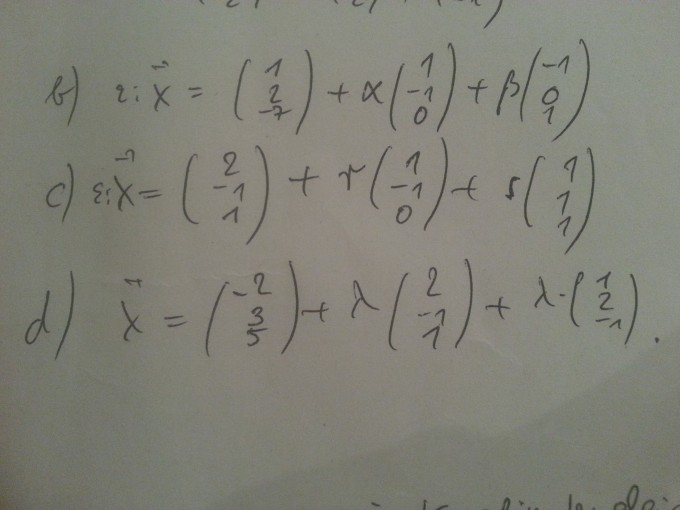 b) ε: x⃗ = (1 2 -7) + α (1 -1 0) + β (-1 0 1)
c) ε: x⃗ = (2 -1 1) + r (1 -1 0) + s (1 1 1)
d) x⃗ = (-2 3 5) + λ (2 -1 1) + λ · (1 2 -1).